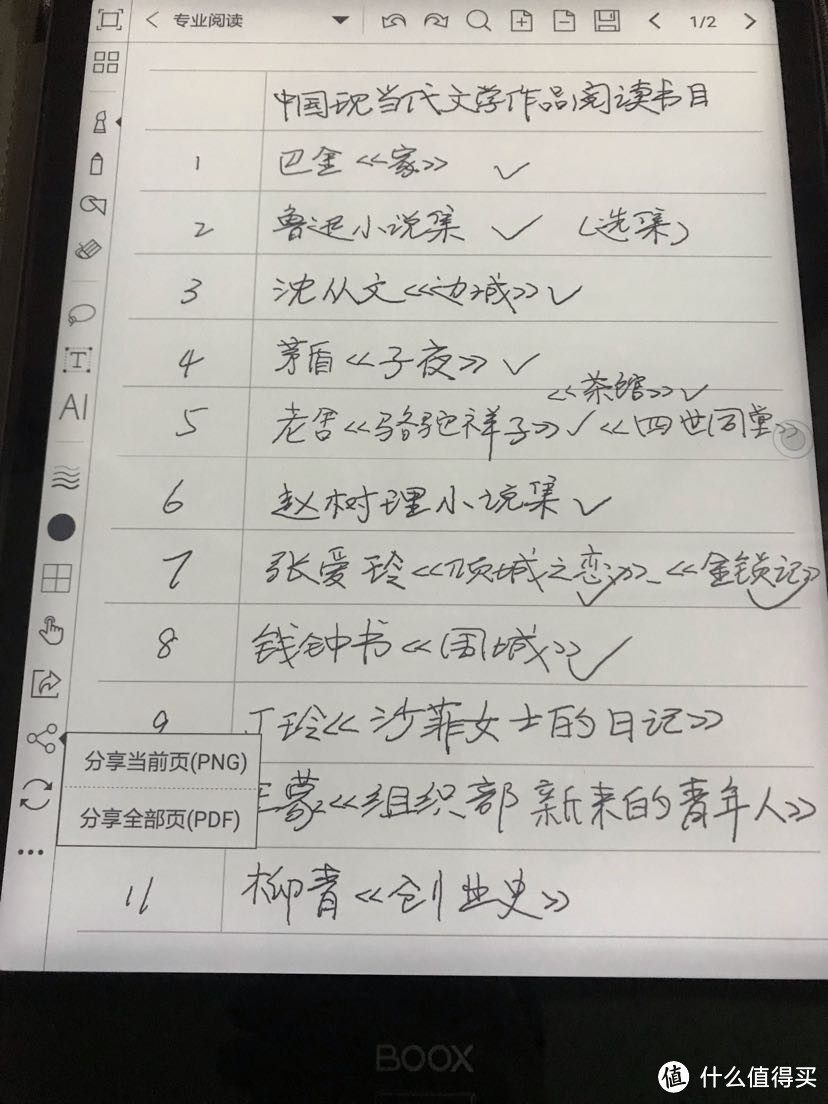 专业阅读 1/2
中国现当代文学作品阅读书目
1 巴金《家》 ✓
2 鲁迅小说集 ✓ (选集)
3 沈从文《边城》✓
4 茅盾《子夜》✓
《茶馆》✓
5 老舍《骆驼祥子》✓《四世同堂》
6 赵树理小说集 ✓
7 张爱玲《倾城之恋》✓、《金锁记》✓
8 钱钟书《围城》✓
9 丁玲《莎菲女士的日记》
王蒙《组织部新来的青年人》
11 柳青《创业史》
T
AI
分享当前页(PNG)
分享全部页(PDF)
BOOX
值 什么值得买